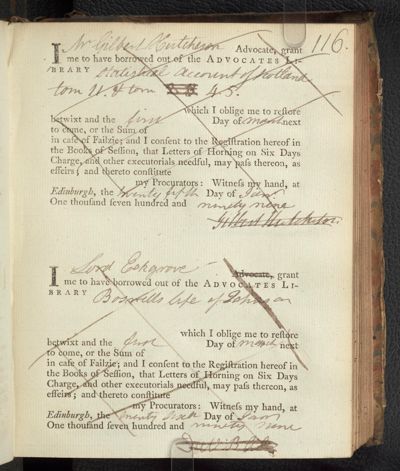 116.
I Mr Gilbert Hutcheson Advocate, grant
me to have borrowed out of the ADVOCATES LI-
BRARY Statistical Account of Scotland
tom 11. & tom 45.
which I oblige me to reſtore
betwixt and the first Day of March next
to come, or the Sum of
in caſe of Failzie; and I conſent to the Regiſtration hereof in
the Books of Seſſion, that Letters of Horning on Six Days
Charge, and other executorials needful, may paſs thereon, as
effeirs; and thereto conſtitute
my Procurators: Witneſs my hand, at
Edinburgh, the twenty fifth Day of Jany
One thouſand ſeven hundred and ninety nine
Gilbert Hutcheson
I Lord Eskgrove Advocate, grant
me to have borrowed out of the ADVOCATES LI-
BRARY Boswells life of Johnson
which I oblige me to reſtore
betwixt and the first Day of March next
to come, or the Sum of
in caſe of Failzie; and I conſent to the Regiſtration hereof in
the Books of Seſſion, that Letters of Horning on Six Days
Charge, and other executorials needful, may paſs thereon, as
effeirs; and thereto conſtitute
my Procurators: Witneſs my hand, at
Edinburgh, the twenty sixth Day of Jany
One thouſand ſeven hundred and ninety nine